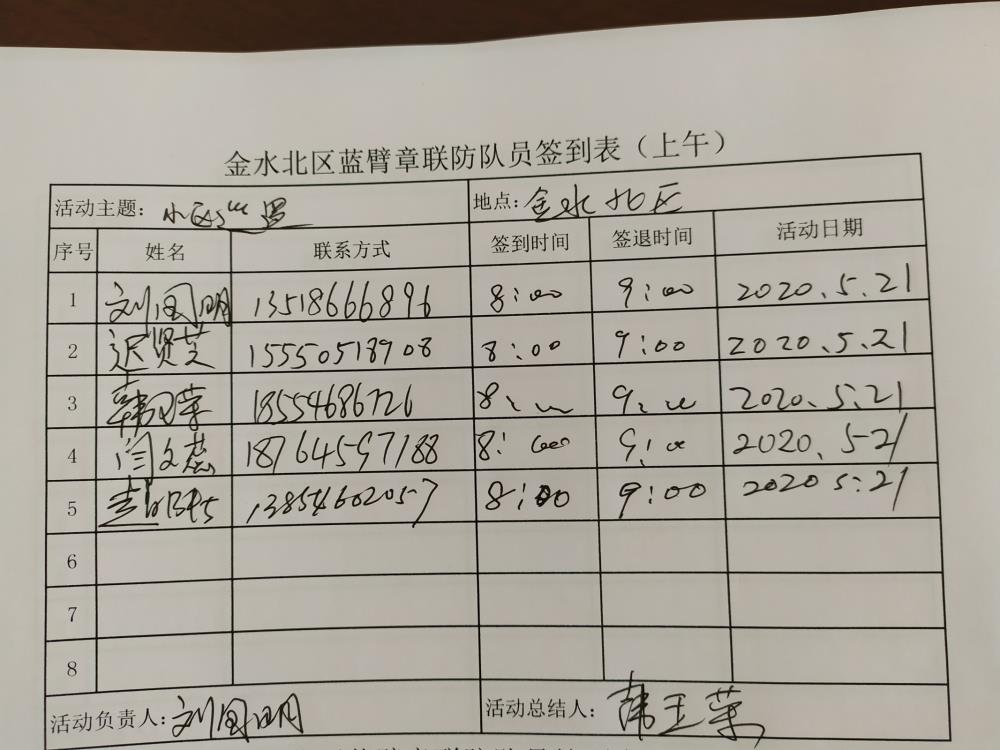 金水北区蓝臂章联防队员签到表（上午）
活动主题： 小区 地点：金水北区
序号 姓名 联系方式 签到时间 签退时间 活动日期
1 刘国明 13518666896 8:00 9:00 2020.5.21
2 迟贤芝 15550518908 8:00 9:00 2020.5.21
3 18554686726 8:00 9:00 2020.5.21
4 闫文慧 18764597188 8:00 9:00 2020.5-21
5 13854602057 8:00 9:00 2020 5.21
6
7
8
活动负责人：刘国明 活动总结人：韩玉荣